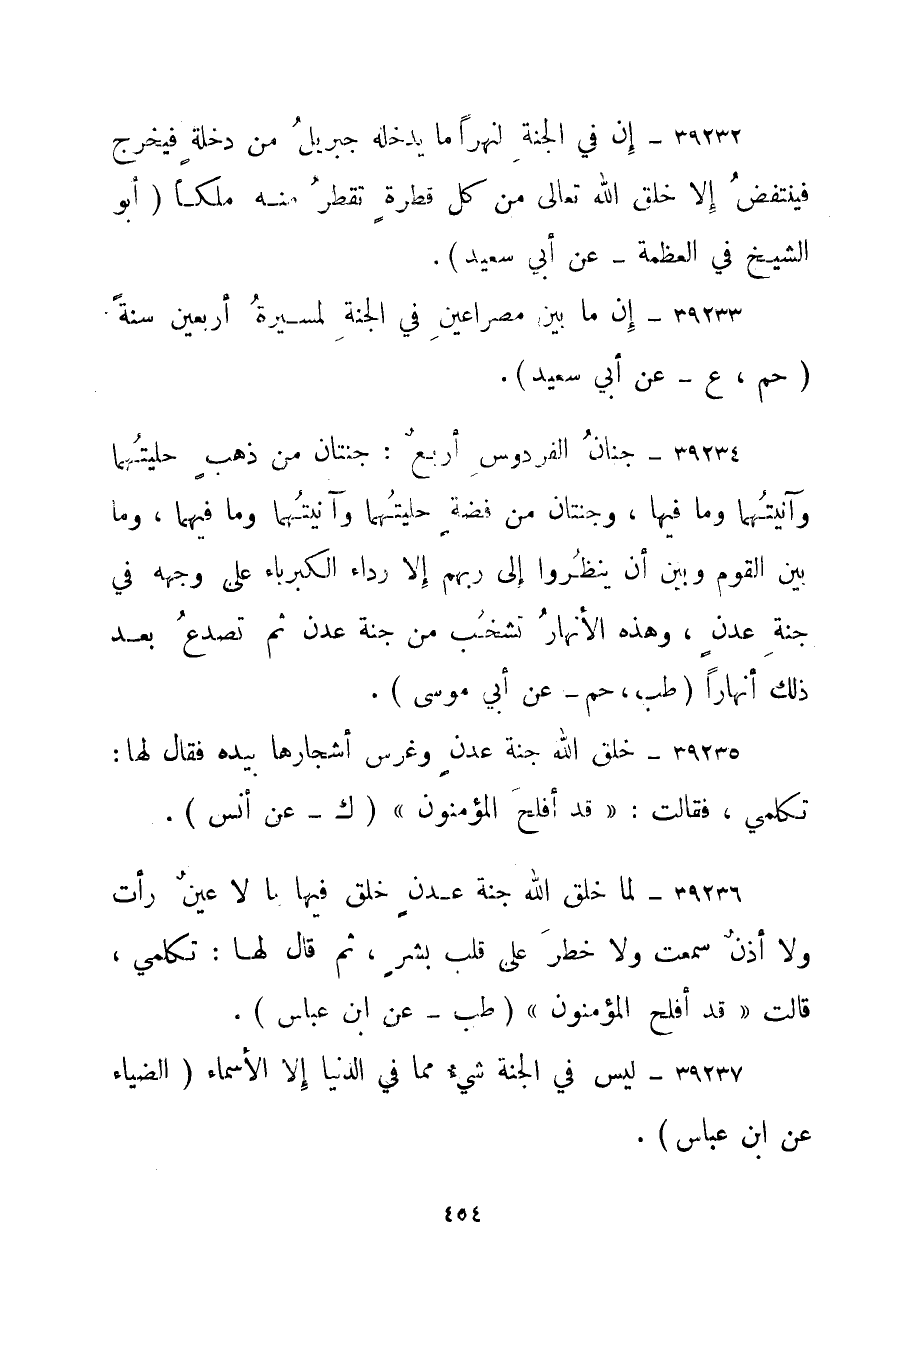 ٣٩٢٣٢ ـ إن في الجنةِ لنهراً ما يدخله جبريلُ من دخلةٍ فيخرج
فينتفضُ إلا خلق الله تعالى من كل قطرةٍ تقطرُ منه ملكاً ( أبو
الشيخ في العظمة ـ عن أبي سعيد ) .
٣٩٢٣٣ ـ إن ما بين مصراعينِ في الجنةِ لمسيرةُ أربعين سنةً
( حم ، ع ـ عن أبي سعيد ) .
٣٩٢٣٤ ـ جنانُ الفردوسِ أربعٌ : جنتان من ذهبٍ حليتُهما
وآنيتُهما وما فيها ، وجنتان من فضةٍ حليتُهما وآنيتُهما وما فيهما ، وما
بين القوم وبين أن ينظُروا إلى ربهم إلا رداء الكبرياء على وجهه في
جنةِ عدنٍ ، وهذه الأنهارُ تشخُب من جنة عدن ثم تصدعُ بعد
ذلك أنهاراً ( طب ، حم ـ عن أبي موسى ) .
٣٩٢٣٥ ـ خلق الله جنة عدنٍ وغرس أشجارها بيده فقال لها :
تكلمي ، فقالت : « قد أفلحَ المؤمنون » ( ك ـ عن أنس ) .
٣٩٢٣٦ ـ لما خلق الله جنة عدنٍ خلق فيها ما لا عينٌ رأت
ولا أذنٌ سمعت ولا خطرَ على قلب بشرٍ ، ثم قال لها : تكلمي ،
قالت « قد أفلح المؤمنون » ( طب ـ عن ابن عباس ) .
٣٩٢٣٧ ـ ليس في الجنة شيء مما في الدنيا إلا الأسماء ( الضياء
عن ابن عباس ) .
٤٥٤